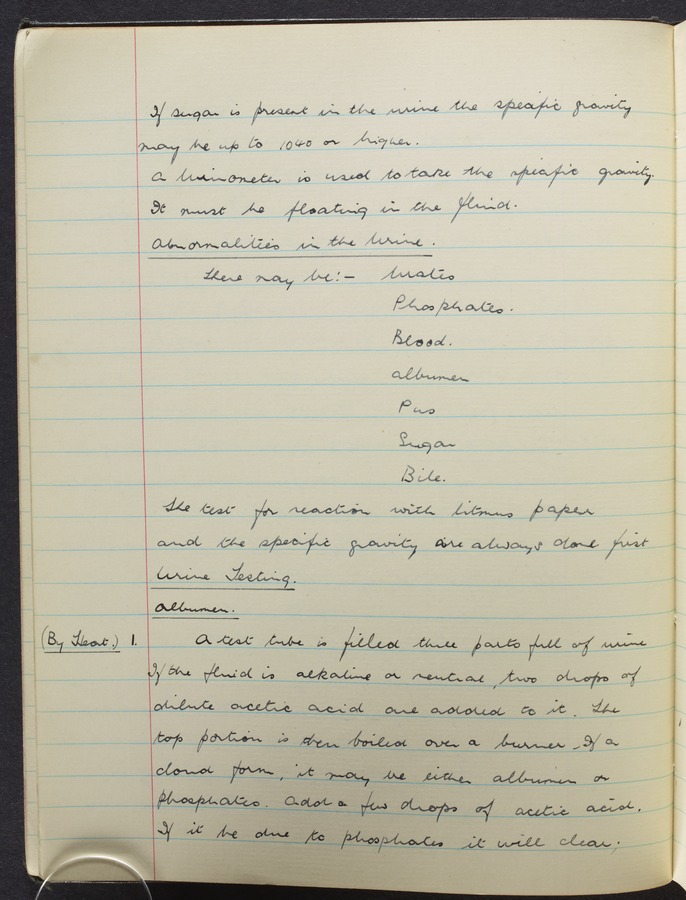 If sugar is present in the urine the specific gravity
may be up to 1040 or higher.
A Urinometer is used to take the specific gravity.
It must be floating in the fluid.
Abnormalities in the Urine.
There may be:- Urates
Phosphates.
Blood.
Albumen
Pus
Sugar
Bile.
The test for reaction with litmus paper
and the specific gravity are always done first
Urine Testing.
Albumen.
(By Heat.) 1. A test tube is filled three parts full of urine
If the fluid is alkaline or neutral, two drops of
dilute acetic acid are added to it. The
top portion is then boiled over a burner. If a
cloud form, it may be either albumen or
phosphates. Add a few drops of acetic acid.
If it be due to phosphates it will clear;